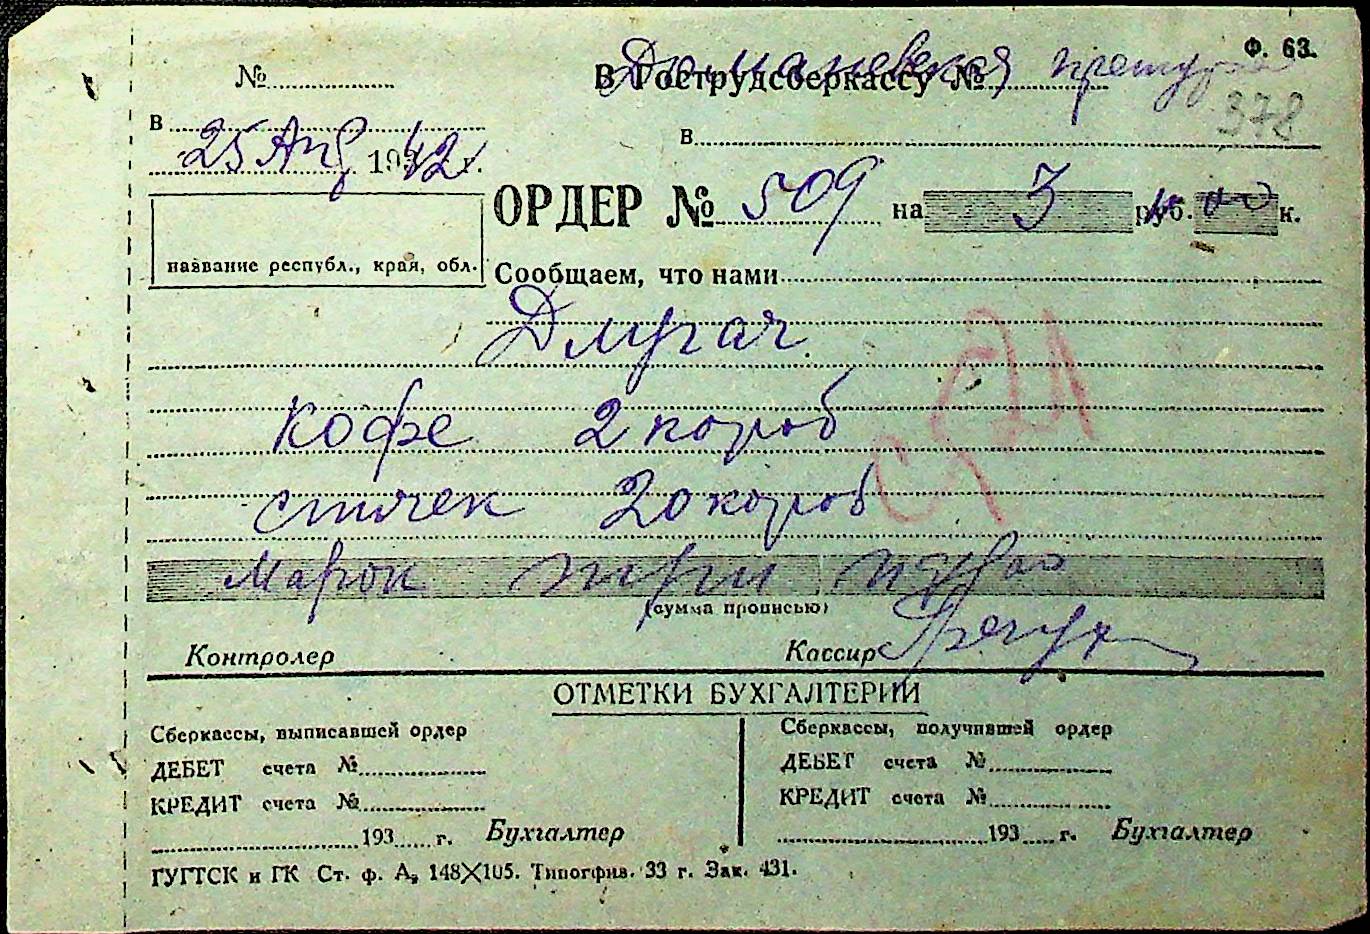 Ф. 63.
№ В Гострудсберкассу №
378
в 25 Авг 1942 г. в
ОРДЕР № 509 на 3 руб. 00 к.
название республ., края, обл.
Сообщаем, что нами
Длугач
кофе 2 короб
спичек 20 короб
Марок три
(сумма прописью)
Контролер Кассир
ОТМЕТКИ БУХГАЛТЕРИИ
Сберкассы, выписавшей ордер Сберкассы, получившей ордер
ДЕБЕТ счета № ДЕБЕТ счета №
КРЕДИТ счета № КРЕДИТ счета №
193 г. Бухгалтер 193 г. Бухгалтер
ГУГТСК и ГК Ст. ф. А, 148×105. Типогфив. 33 г. Зак. 431.